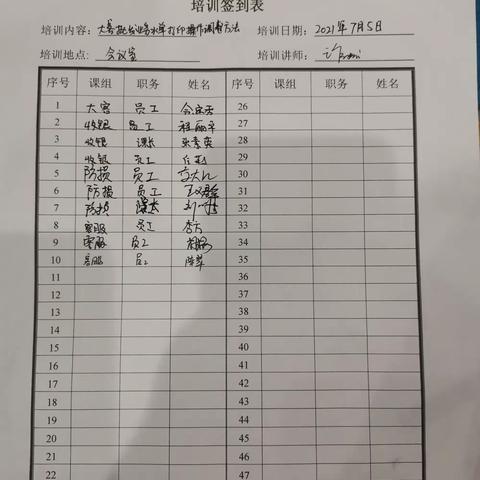 培训签到表
培训内容: 大客批发业务水单打印操作调整方法 培训日期: 2021年7月5日
培训地点: 会议室 培训讲师:
序号 课组 职务 姓名 序号 课组 职务 姓名
1 大客 员工 26
2 收银 员工 程丽平 27
3 收银 课长 28
4 收银 员工 29
5 防损 员工 30
6 防损 员工 31
7 防损 课长 32
8 客服 员工 李方 33
9 客服 员工 34
10 客服 员工 陈翠 35
11 36
12 37
13 38
14 39
15 40
16 41
17 42
18 43
19 44
20 45
21 46
22 47